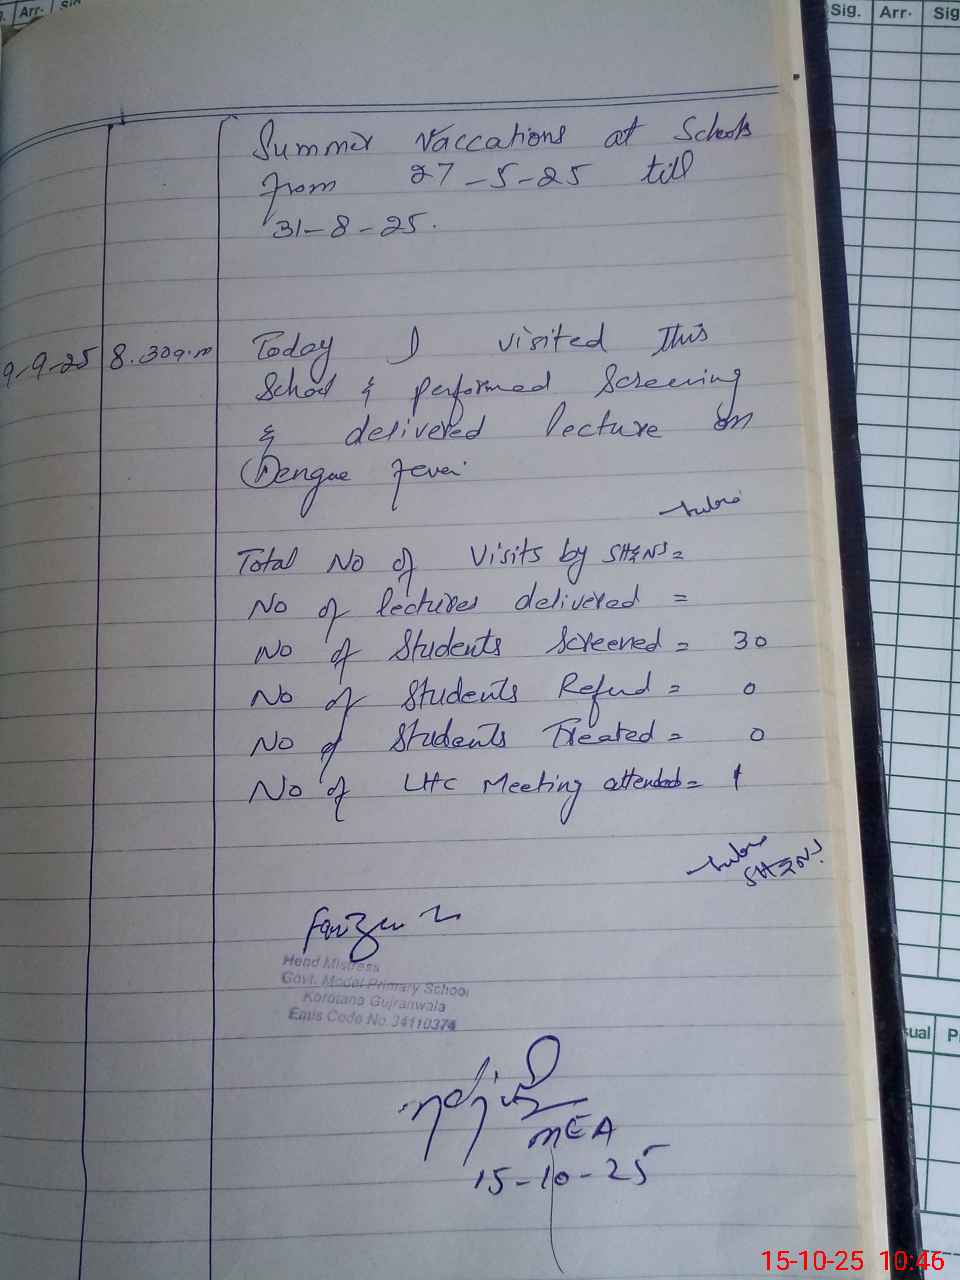 Arr.
Sig.
Arr.
Sig
Summer Vaccations at Schools
from 27-5-25 till
31-8-25.
9-9-25 8.30a.m Today I visited This
School & performed Screening
& delivered lecture on
Dengue fever
Total No of Visits by SH&NS =
No of lectures delivered =
No of Students Screened = 30
No of Students Refred = 0
No of Students Treated = 0
No of LHC Meeting attended = 1
SH&NS
Head Mistress
Govt. Model Primary School
Korotana Gujranwala
Emis Code No 34110374
MEA
15-10-25
15-10-25 10:46